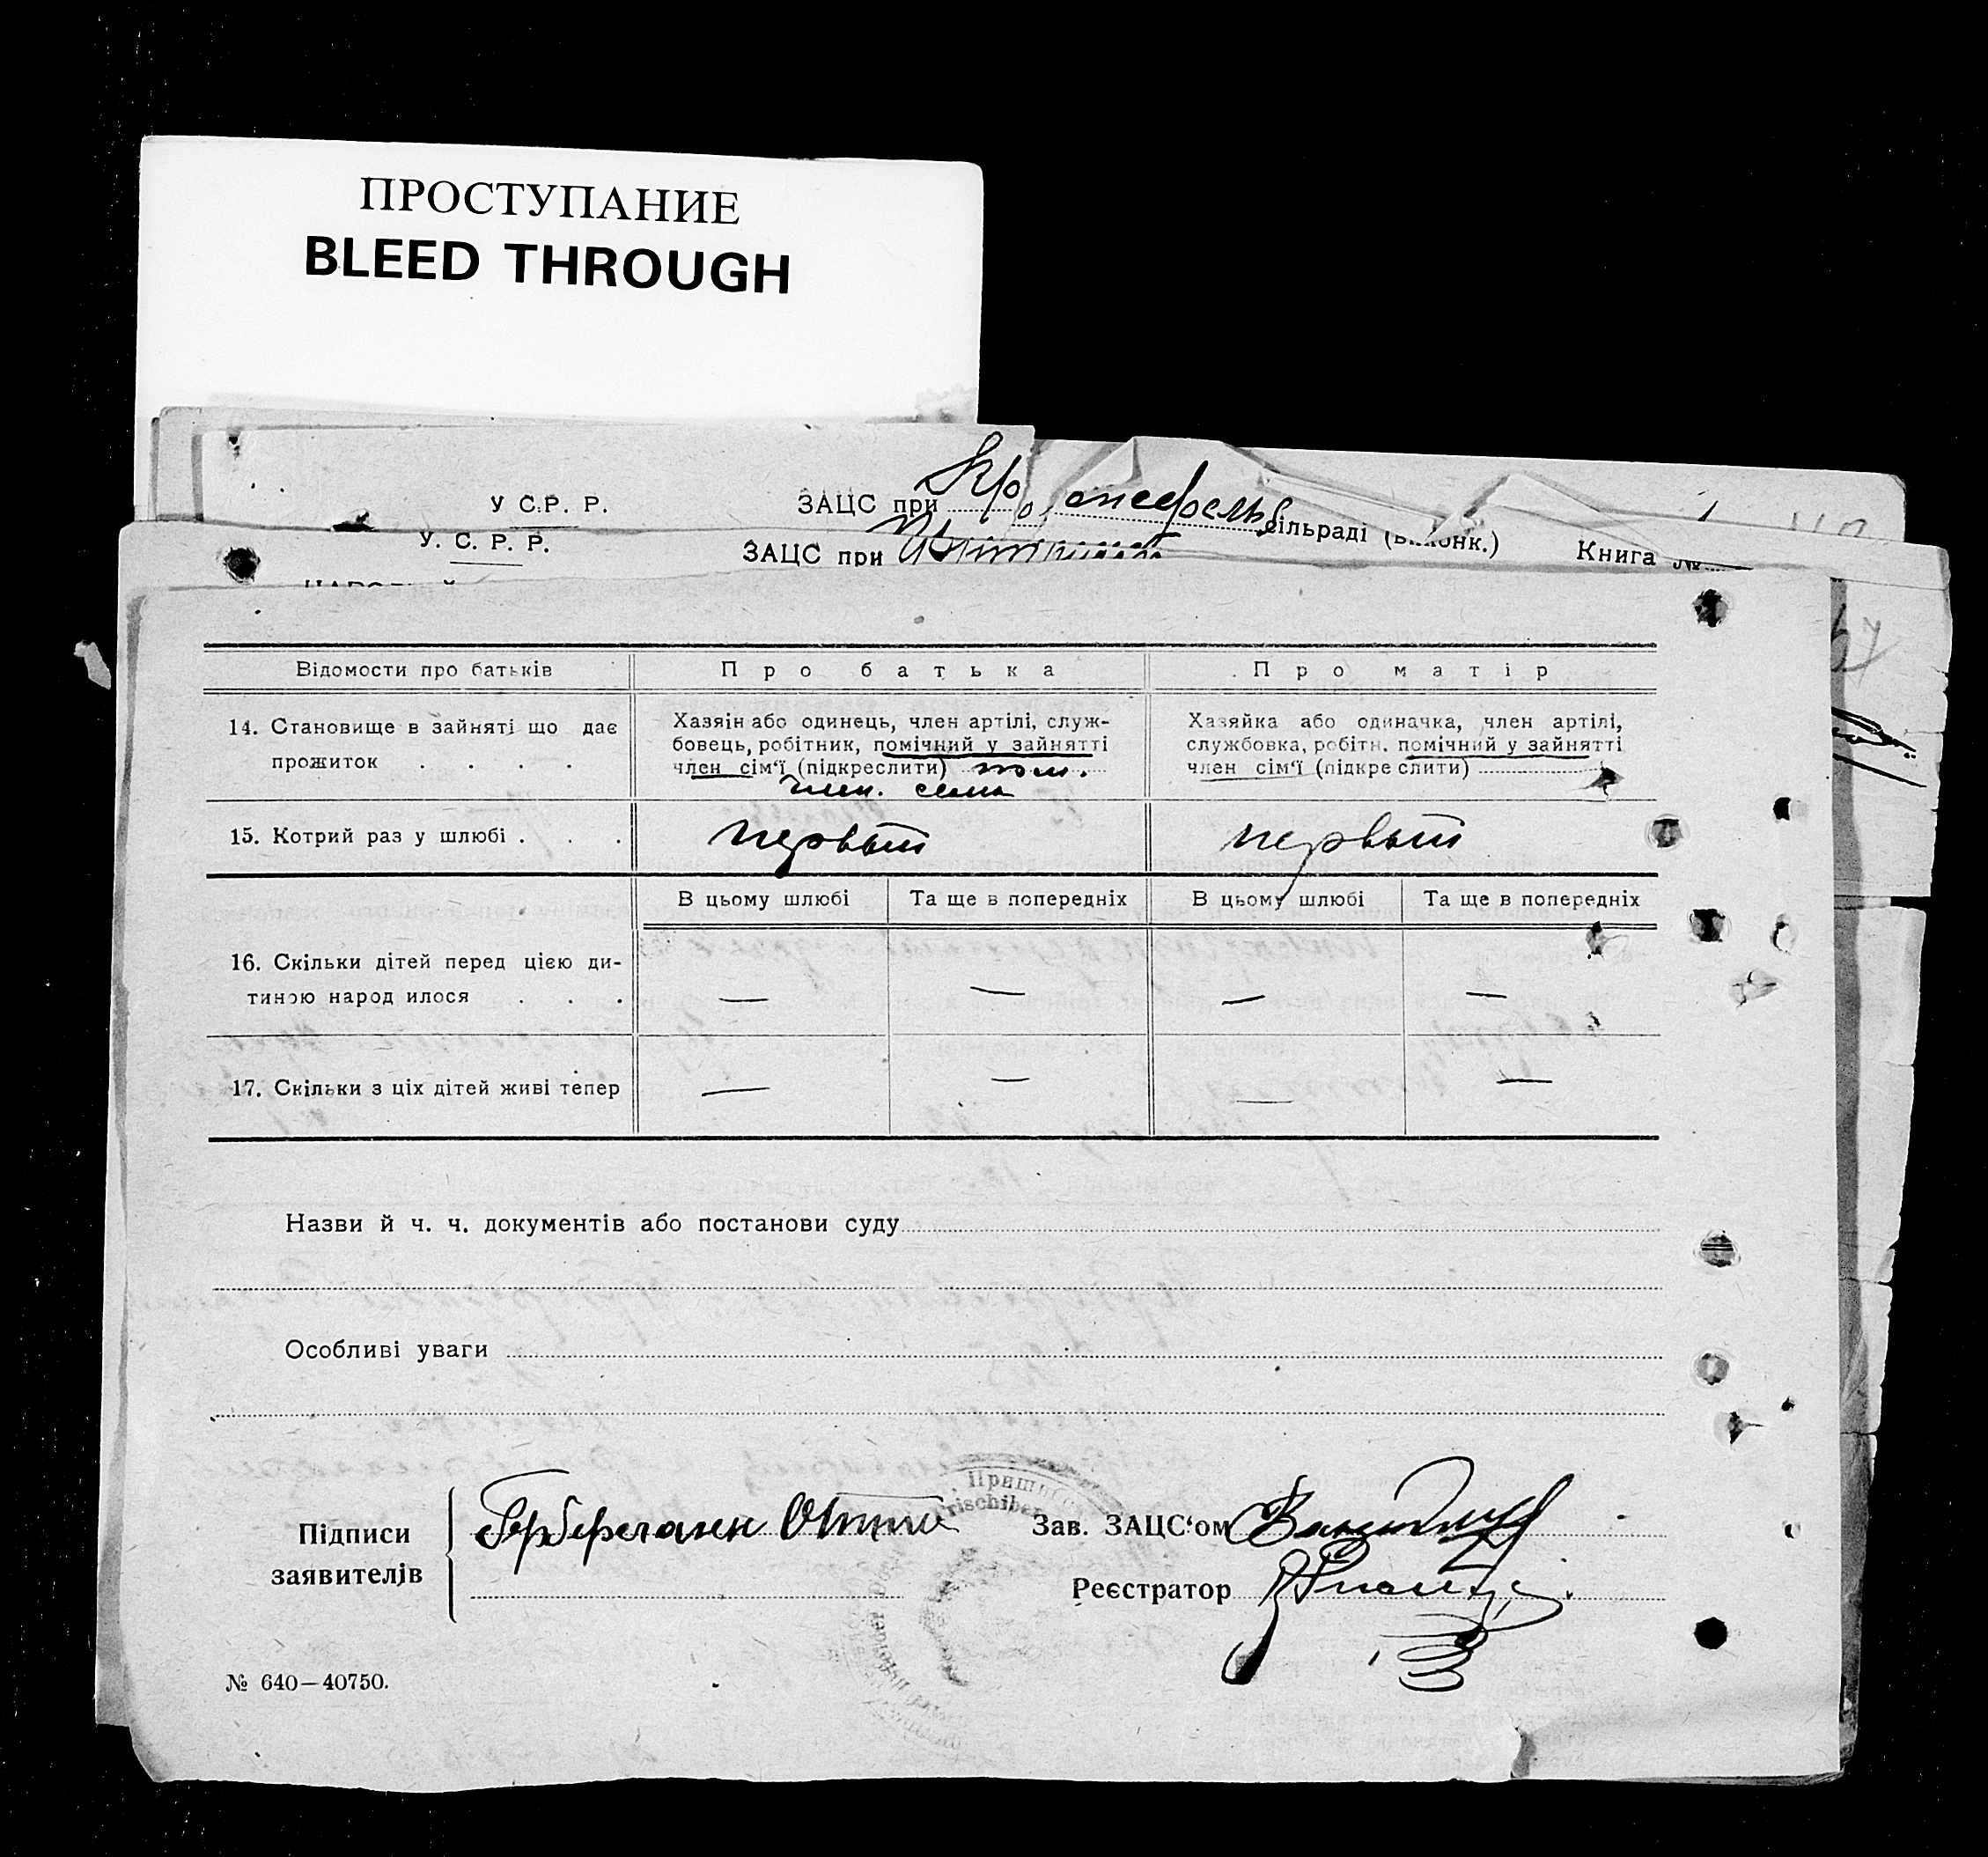 ПРОСТУПАНИЕ
BLEED THROUGH
У С.Р. Р. ЗАЦС при сільраді
У. С. Р. Р. ЗАЦС при Книга №
Відомости про батьків Про батька Про матір
14. Становище в зайняті що дає Хазяін або одинець, член артілі, служ- Хазяйка або одиначка, член артілі,
прожиток . . . . бовець, робітник, помічний у зайнятті службовка, робітн. помічний у зайнятті
член сім‘ї (підкреслити) пом. член сім‘ї (підкреслити)
член. семи
15. Котрий раз у шлюбі . . . первый первый
В цьому шлюбі Та ще в попередніх В цьому шлюбі Та ще в попередніх
16. Скільки дітей перед цією ди-
тиною народ илося . . . — — — —
17. Скільки з ціх дітей живі тепер — — — —
Назви й ч. ч. документів або постанови суду
Особливі уваги
Підписи Зав. ЗАЦС‘ом
заявителів Реєстратор
№ 640—40750.